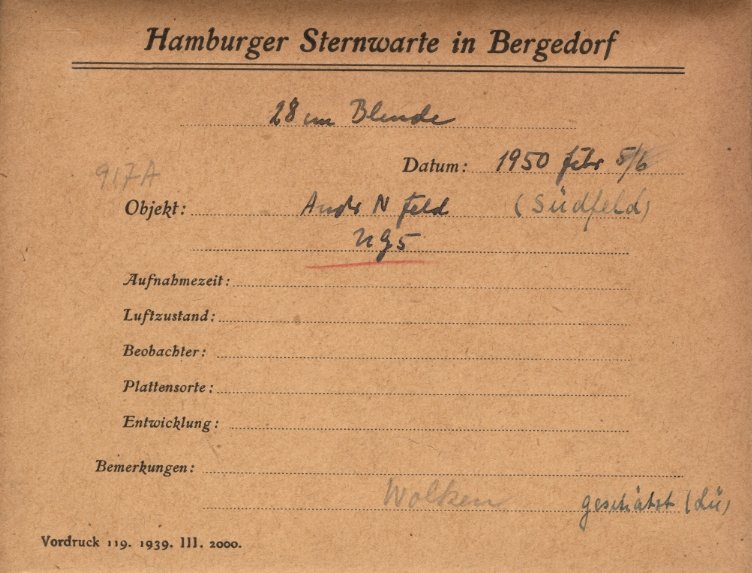 Hamburger Sternwarte in Bergedorf
28 cm Blende
Datum: 1950 Febr 5/6
917A
Objekt: Andr N Feld (Südfeld)
UG5
Aufnahmezeit:
Luftzustand:
Beobachter:
Plattensorte:
Entwicklung:
Bemerkungen:
Wolken geschätzt (Lü)
Vordruck 119. 1939. III. 2000.